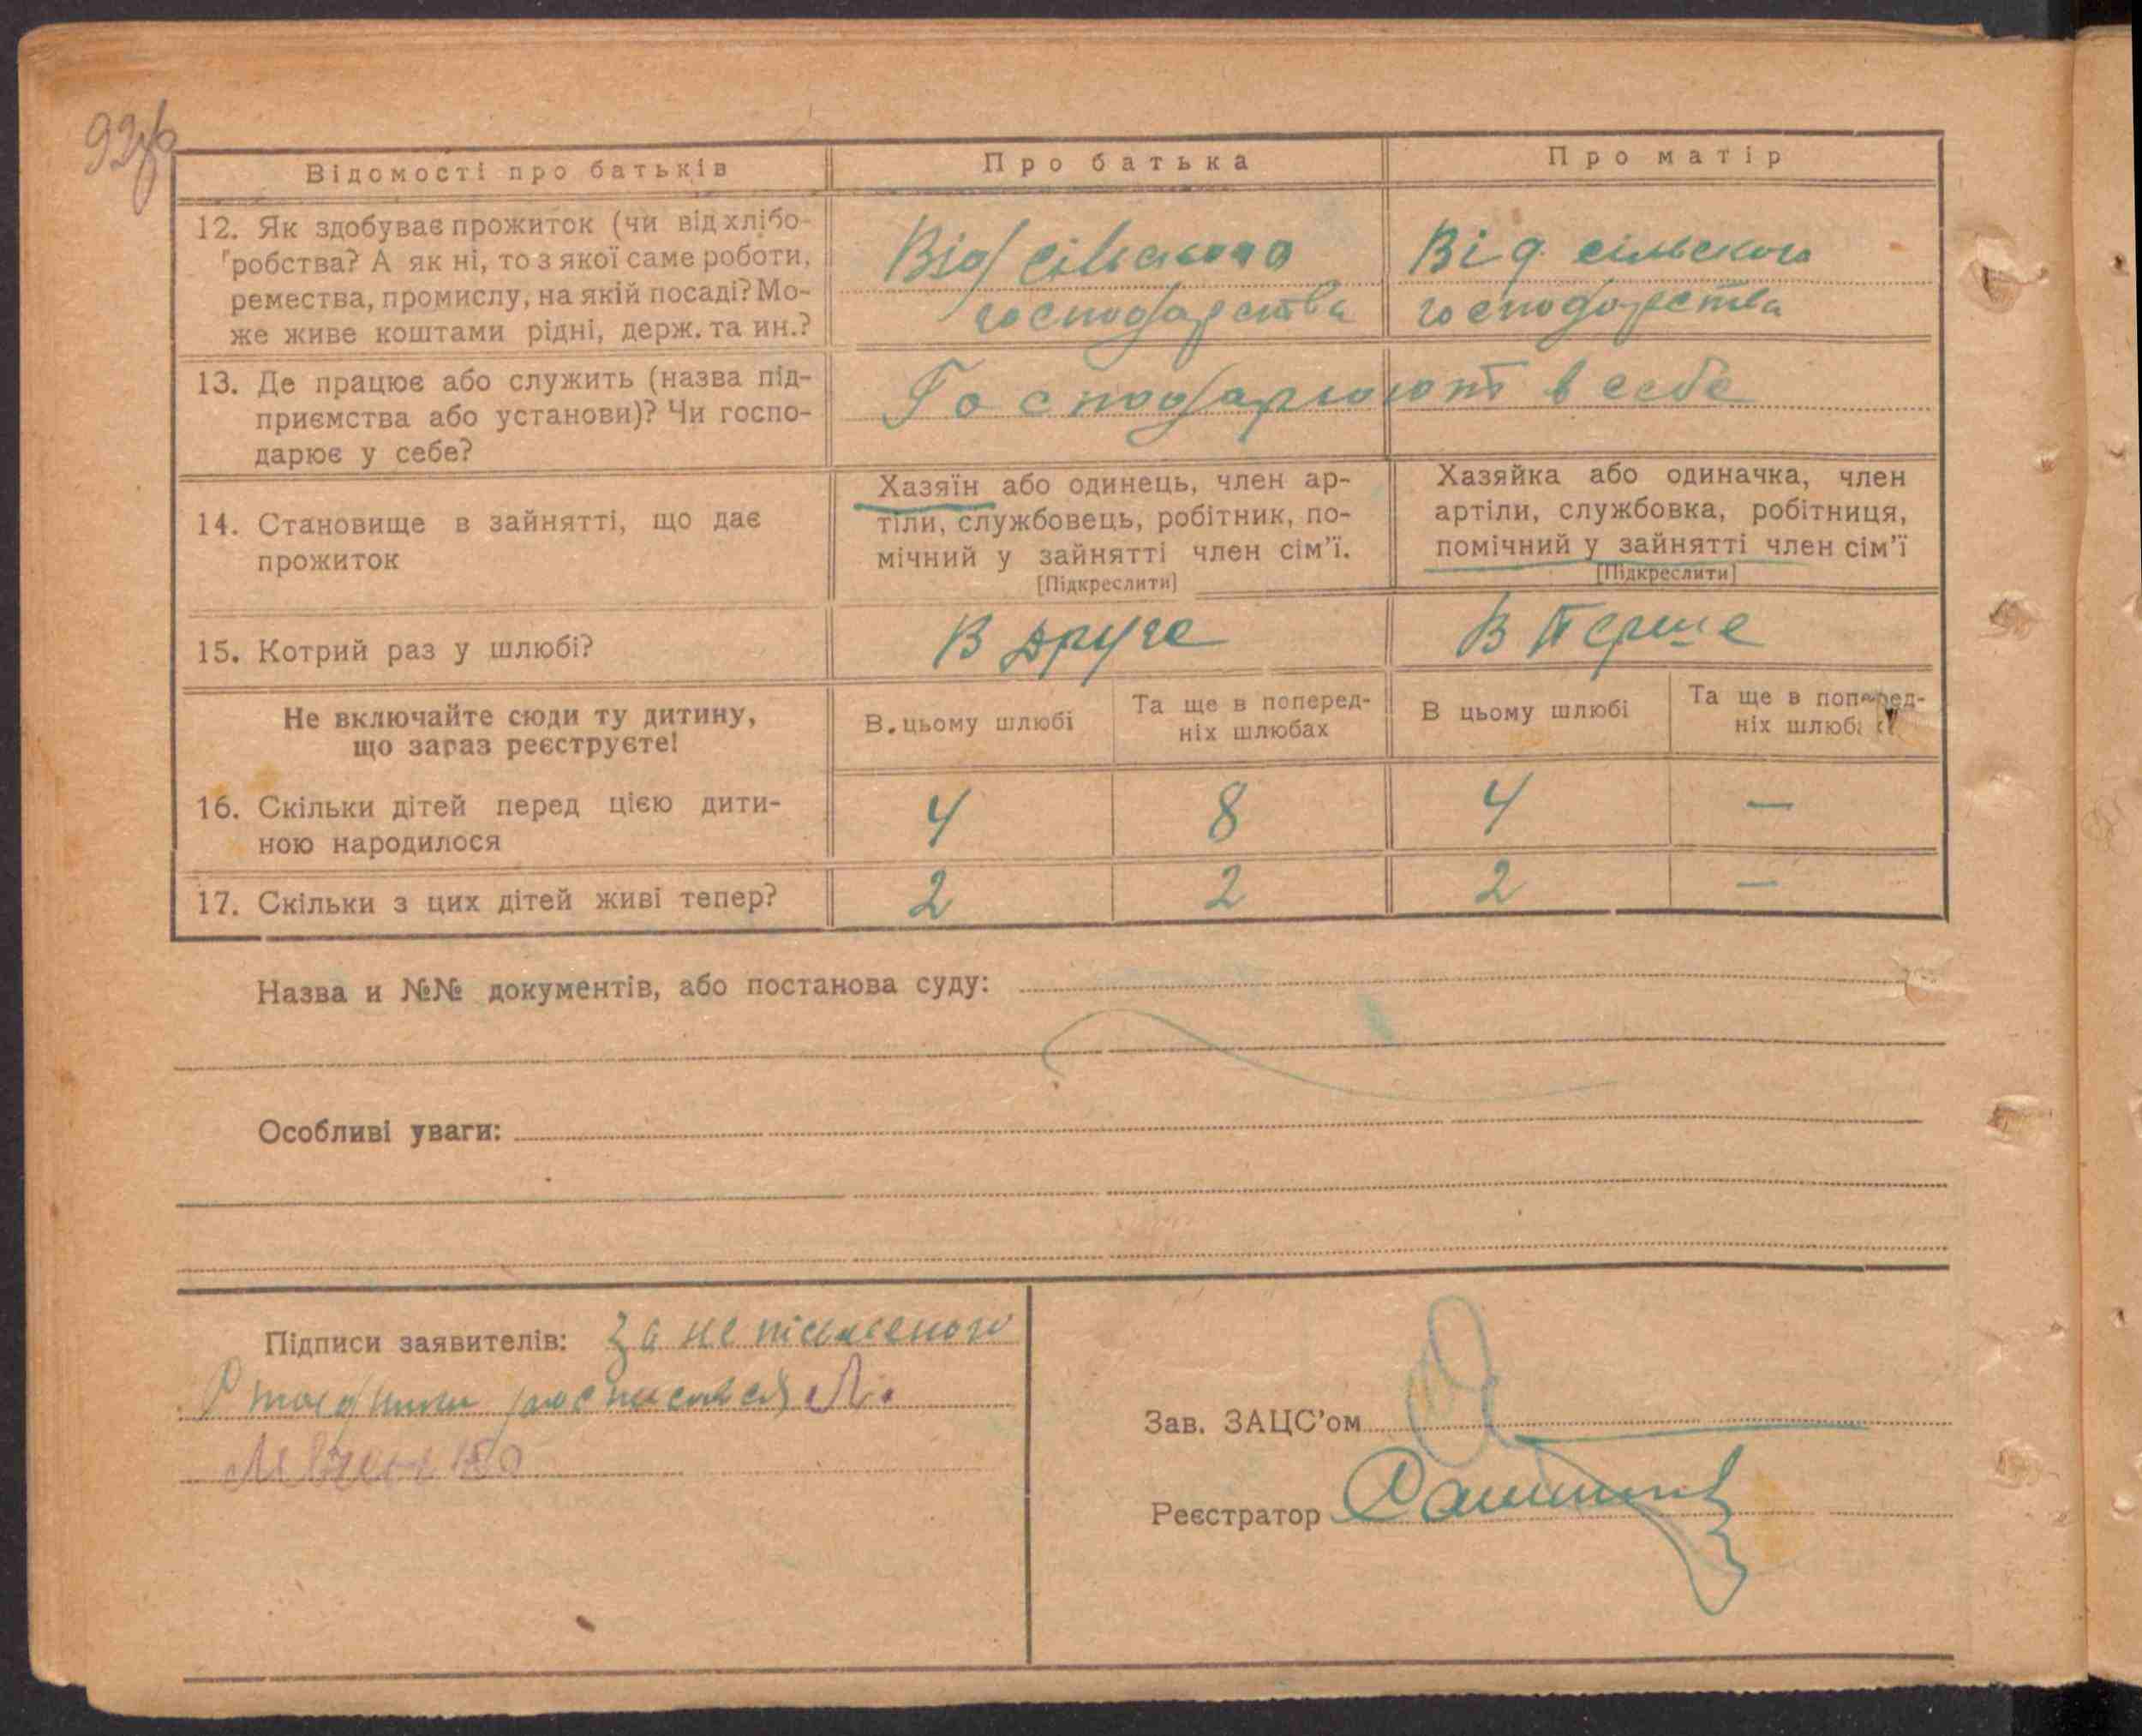 Відомості про батьків
Про батька
Про матір
12. Як здобуває прожиток (чи від хлібо-
робства? А як ні, то з якої саме роботи,
ремества, промислу, на якій посаді? Мо-
же живе коштами рідні, держ. та ин.?
Від сільского
господарства
Від сільского
господарства
13. Де працює або служить (назва під-
приємства або установи)? Чи госпо-
дарює у себе?
Господарюют в себе
14. Становище в зайнятті, що дає
прожиток
Хазяїн або одинець, член ар-
тіли, службовець, робітник, по-
мічний у зайнятті член сім'ї.
[Підкреслити]
Хазяйка або одиначка, член
артіли, службовка, робітниця,
помічний у зайнятті член сім'ї
[Підкреслити]
15. Котрий раз у шлюбі?
В друге
В перше
Не включайте сюди ту дитину,
що зараз реєструєте!
В цьому шлюбі
Та ще в поперед-
ніх шлюбах
В цьому шлюбі
Та ще в поперед-
ніх шлюбах
16. Скільки дітей перед цією дити-
ною народилося
4
8
4
—
17. Скільки з цих дітей живі тепер?
2
2
2
—
Назва и №№ документів, або постанова суду:
Особливі уваги:
Підписи заявителів: За не письменого
росписався
Зав. ЗАЦС'ом
Реєстратор